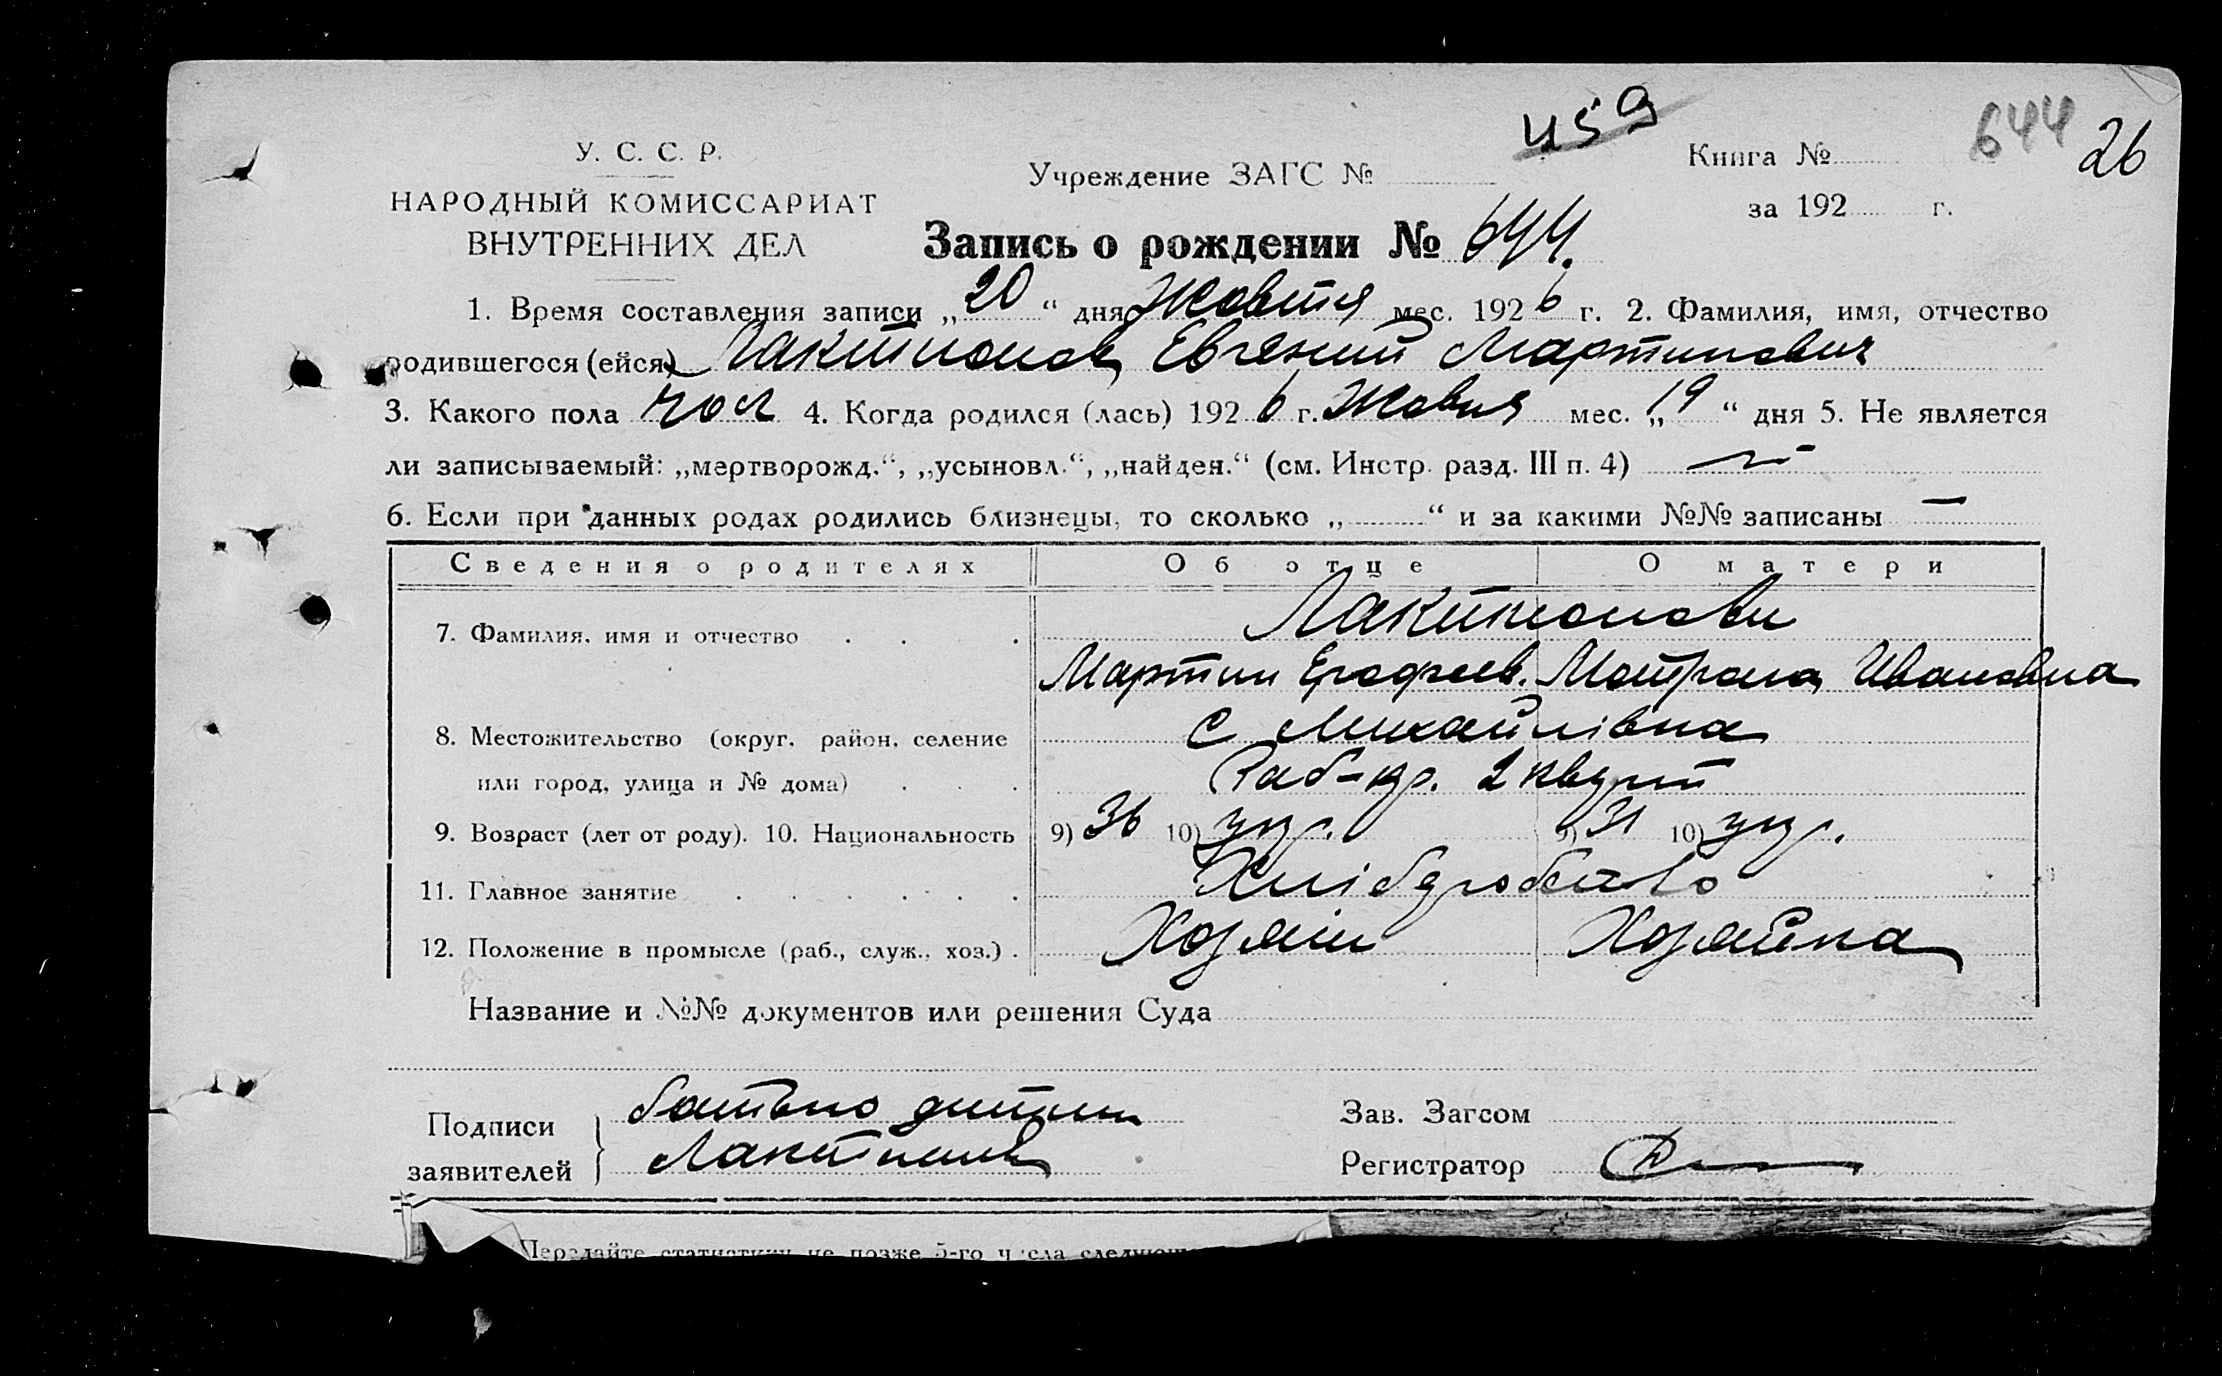 459
644
26
У. С. С. Р.
НАРОДНЫЙ КОМИССАРИАТ
ВНУТРЕННИХ ДЕЛ
Учреждение ЗАГС №
Книга №
за 192 г.
Запись о рождении № 644.
1. Время составления записи „20“ дня Жовтня мес. 1926 г. 2. Фамилия, имя, отчество
родившегося (ейся) Лактионов Евгений Мартинович
3. Какого пола чол 4. Когда родился (лась) 1926 г. Жовтня мес. „19“ дня 5. Не является
ли записываемый: „мертворожд.“, „усыновл.“, „найден.“ (см. Инстр. разд. III п. 4) —
6. Если при данных родах родились близнецы, то сколько „ “ и за какими №№ записаны —
Сведения о родителях Об отце О матери
Лактионови
7. Фамилия, имя и отчество
Мартин Ерофеев. Мотрона Ивановна
8. Местожительство (округ, район, селение с Михайлівка
или город, улица и № дома) 2
9. Возраст (лет от роду). 10. Национальность 9) 36 10) укр. 9) 31 10) укр.
11. Главное занятие Хліборобство
12. Положение в промысле (раб., служ., хоз.) Хозяин Хозяйка
Название и №№ документов или решения Суда
Подписи заявителей батько дитини
Лактионов
Зав. Загсом
Регистратор
Передайте статистику не позже 5-го числа